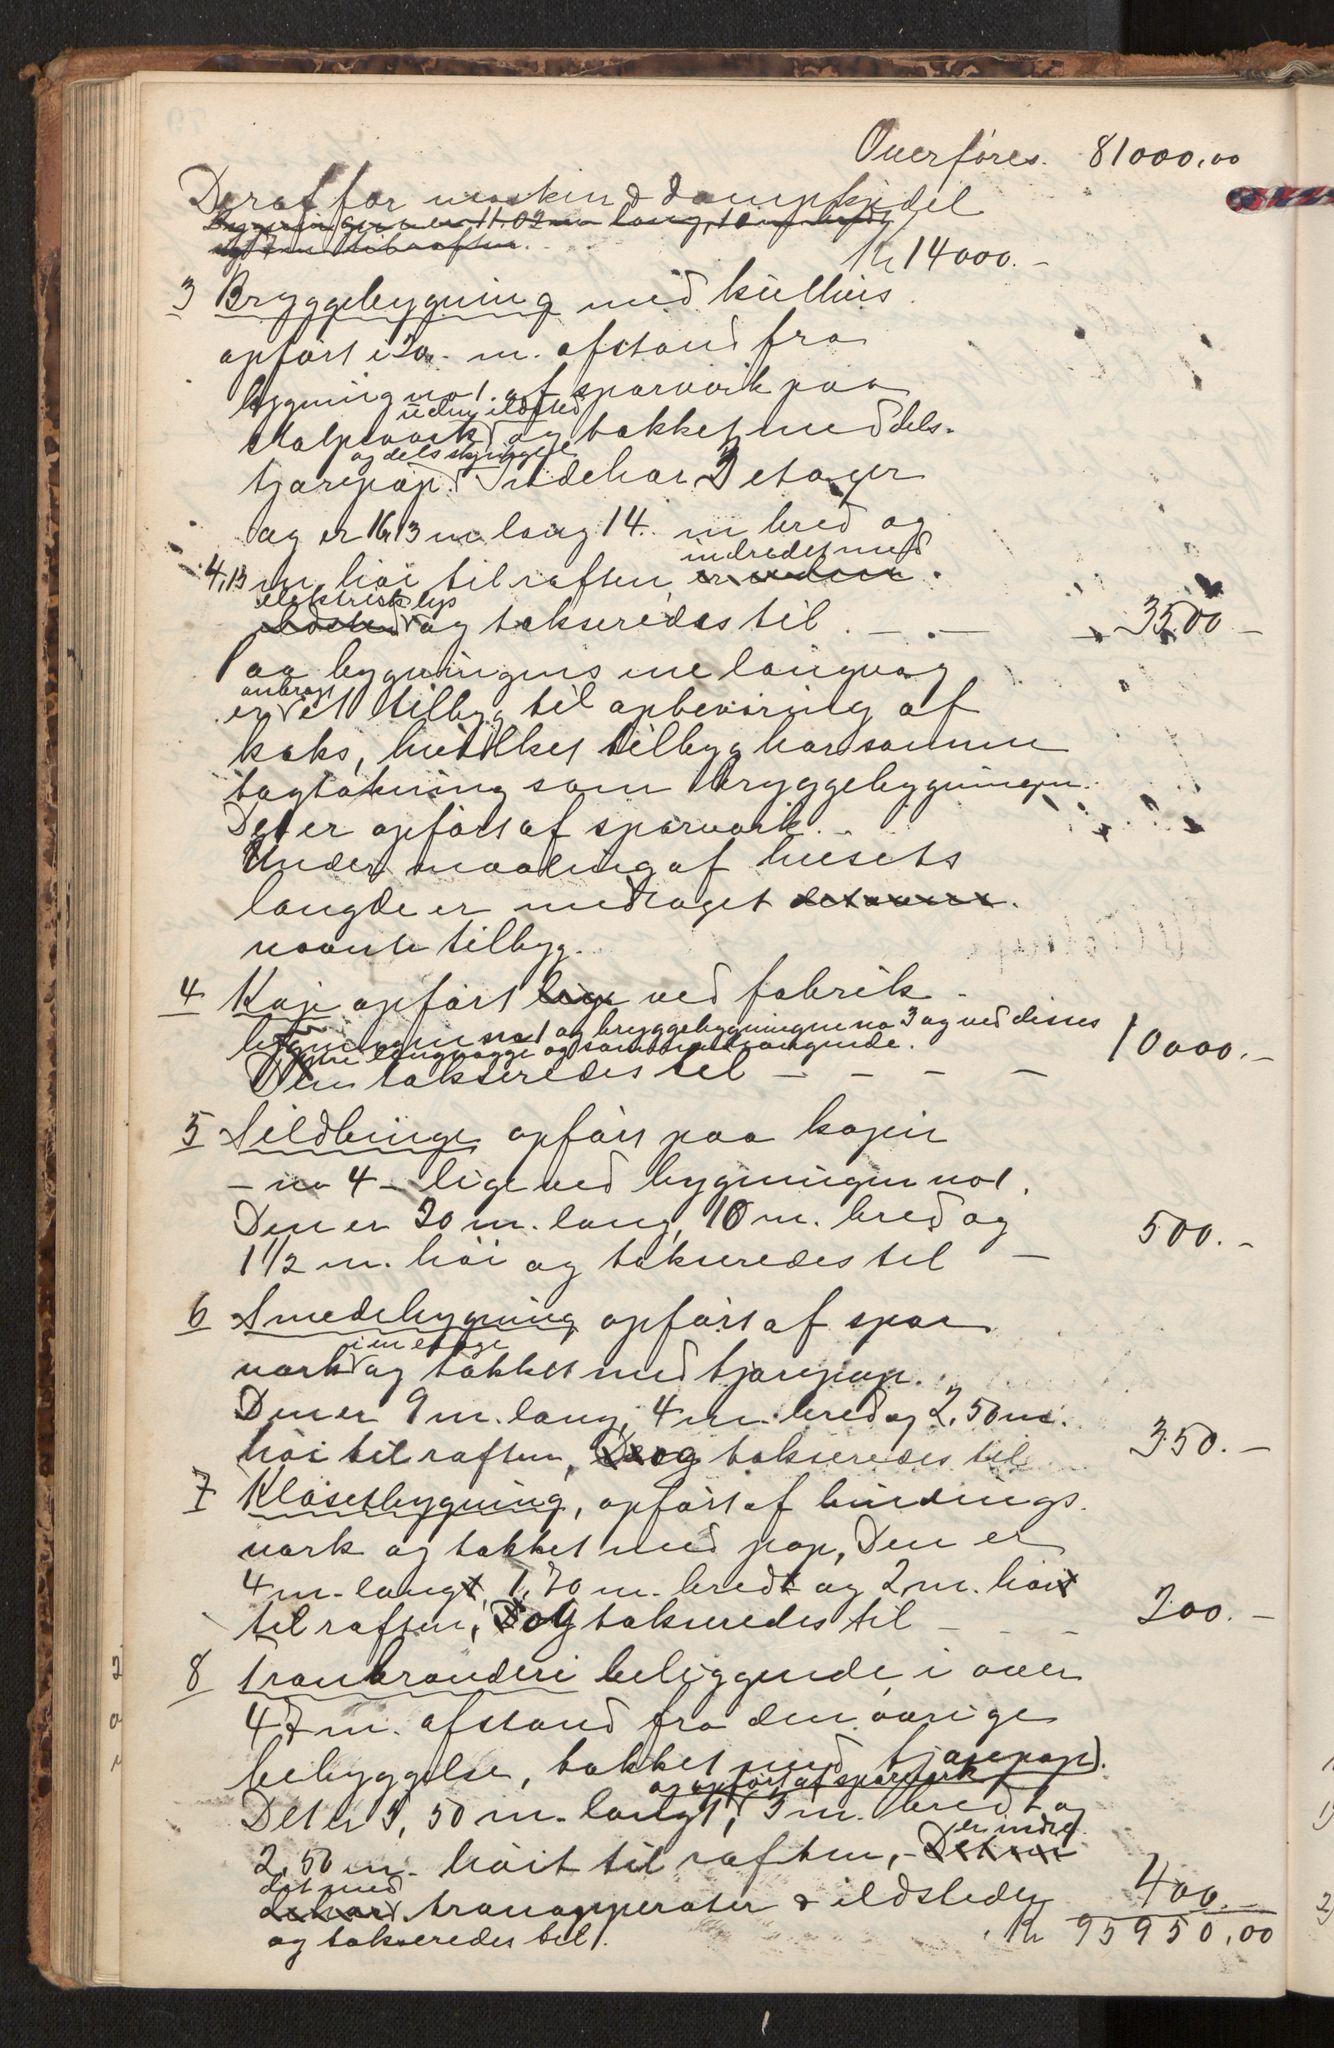 Overføres. 81000,00
Deraf for maskin & dampkjedel
Bygningen er 11,02 m lang, 10 m bred
og 7 m til raften.
Kr 14000.-
3 Bryggebygning med kulhus
opført i 20. m. afstand fra
bygning no 1. af sparværk paa
uden ildsted
stolpeværk og tækket med dels.
og dels skjingel
tjærepap. Indehar 3 etager
og er 16,13 m lang 14. m bred og
indredet med
4,13 m høi til raften er uden.
elektrisk lys
ildsted og takseredes til . - . - - 3500 -
Paa bygningens ene langvæg
anbragt
er et tilbyg til opbevaring af
koks, hvilket tilbyg har samme
tagtækning som bryggebygningen.
Det er opført af sparværk. -
Under maaling af husets
længde er medtaget det ovenn.
nævnte tilbyg.
4 Kaje opført lige ved fabrik -
bygningen no 1 og bryggebygningen no 3 og ved disses
ene langvægge og sammenhængende.
Den takseredes til - - - - 10000.-
5 Sildbinge opført paa kajen
- no 4 - lige ved bygningen no 1.
Den er 20 m. lang, 10 m. bred og
1 1/2 m. høi og takseredes til - 500.-
6 Smedebygning opført af spar
i en etage
værk og tækket med tjærepap.
Den er 9 m. lang, 4 m. bred og 2,50 m.
høi til raften, De og takseredes til 350.-
7 Klosetbygning, opført af bindings.
værk og tækket med pap, Den er
4 m. langt, 1,70 m. bredt og 2 m. høit
til raften, D og takseredes til - - - 200.-
8 Tranbrænderi beliggende i over
47 m. afstand fra den øvrige
bebyggelse, tækket med tjærepap.
og opført af sparværk
Det er 5,50 m. langt, 3 m. bredt og
er indre
2,50 m. høit til raften, - Det er
det med
det har tranapperater & ildsteder 400.-
og takseredes til. Kr 95950,00